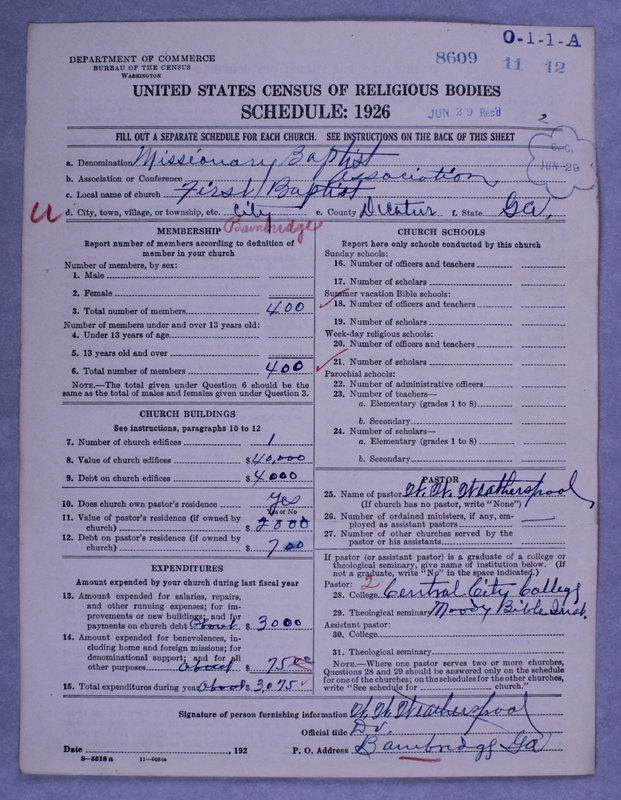 O-1-1-A
DEPARTMENT OF COMMERCE
BUREAU OF THE CENSUS
WASHINGTON
8609 11 12
UNITED STATES CENSUS OF RELIGIOUS BODIES
SCHEDULE: 1926
JUN 29 Rec'd
2
FILL OUT A SEPARATE SCHEDULE FOR EACH CHURCH. SEE INSTRUCTIONS ON THE BACK OF THIS SHEET
JUN 29
a. Denomination Missionary Baptist
b. Association or Conference Association
c. Local name of church First Baptist
u
d. City, town, village, or township, etc. City e. County Decatur f. State Ga.
Bainbridge
MEMBERSHIP
Report number of members according to definition of
member in your church
Number of members, by sex:
1. Male
2. Female
3. Total number of members 400
Number of members under and over 13 years old:
4. Under 13 years of age
5. 13 years old and over
6. Total number of members 400
NOTE.—The total given under Question 6 should be the
same as the total of males and females given under Question 3.
CHURCH BUILDINGS
See instructions, paragraphs 10 to 12
7. Number of church edifices 1
8. Value of church edifices $ 40,000
9. Debt on church edifices $ 4000
10. Does church own pastor's residence? Yes
Yes or No
11. Value of pastor's residence (if owned by
church) $ 2800
12. Debt on pastor's residence (if owned by
church) $ 700
EXPENDITURES
Amount expended by your church during last fiscal year
13. Amount expended for salaries, repairs,
and other running expenses; for im-
provements or new buildings; and for
payments on church debt about $ 3000
14. Amount expended for benevolences, in-
cluding home and foreign missions; for
denominational support; and for all
other purposes about $ 75 00
15. Total expenditures during year about $ 3,075
CHURCH SCHOOLS
Report here only schools conducted by this church
Sunday schools:
16. Number of officers and teachers
17. Number of scholars
Summer vacation Bible schools:
18. Number of officers and teachers
19. Number of scholars
Week-day religious schools:
20. Number of officers and teachers
21. Number of scholars
Parochial schools:
22. Number of administrative officers
23. Number of teachers—
a. Elementary (grades 1 to 8)
b. Secondary
24. Number of scholars—
a. Elementary (grades 1 to 8)
b. Secondary
PASTOR
25. Name of pastor W. W. Weatherspool
(If church has no pastor, write "None")
26. Number of ordained ministers, if any, em-
ployed as assistant pastors —
27. Number of other churches served by the
pastor or his assistants
If pastor (or assistant pastor) is a graduate of a college or
theological seminary, give name of institution below. (If
not a graduate, write "No" in the space indicated.)
Pastor: 2
28. College Central City College
29. Theological seminary Moody Bible Inst.
Assistant pastor:
30. College
31. Theological seminary
NOTE.—Where one pastor serves two or more churches,
Questions 28 and 29 should be answered only on the schedule
for one of the churches; on the schedules for the other churches,
write "See schedule for church."
Signature of person furnishing information W. W. Weatherspool
Official title Dr.
Date , 192 P. O. Address Bainbridge Ga
8—5518 a 11—9034a